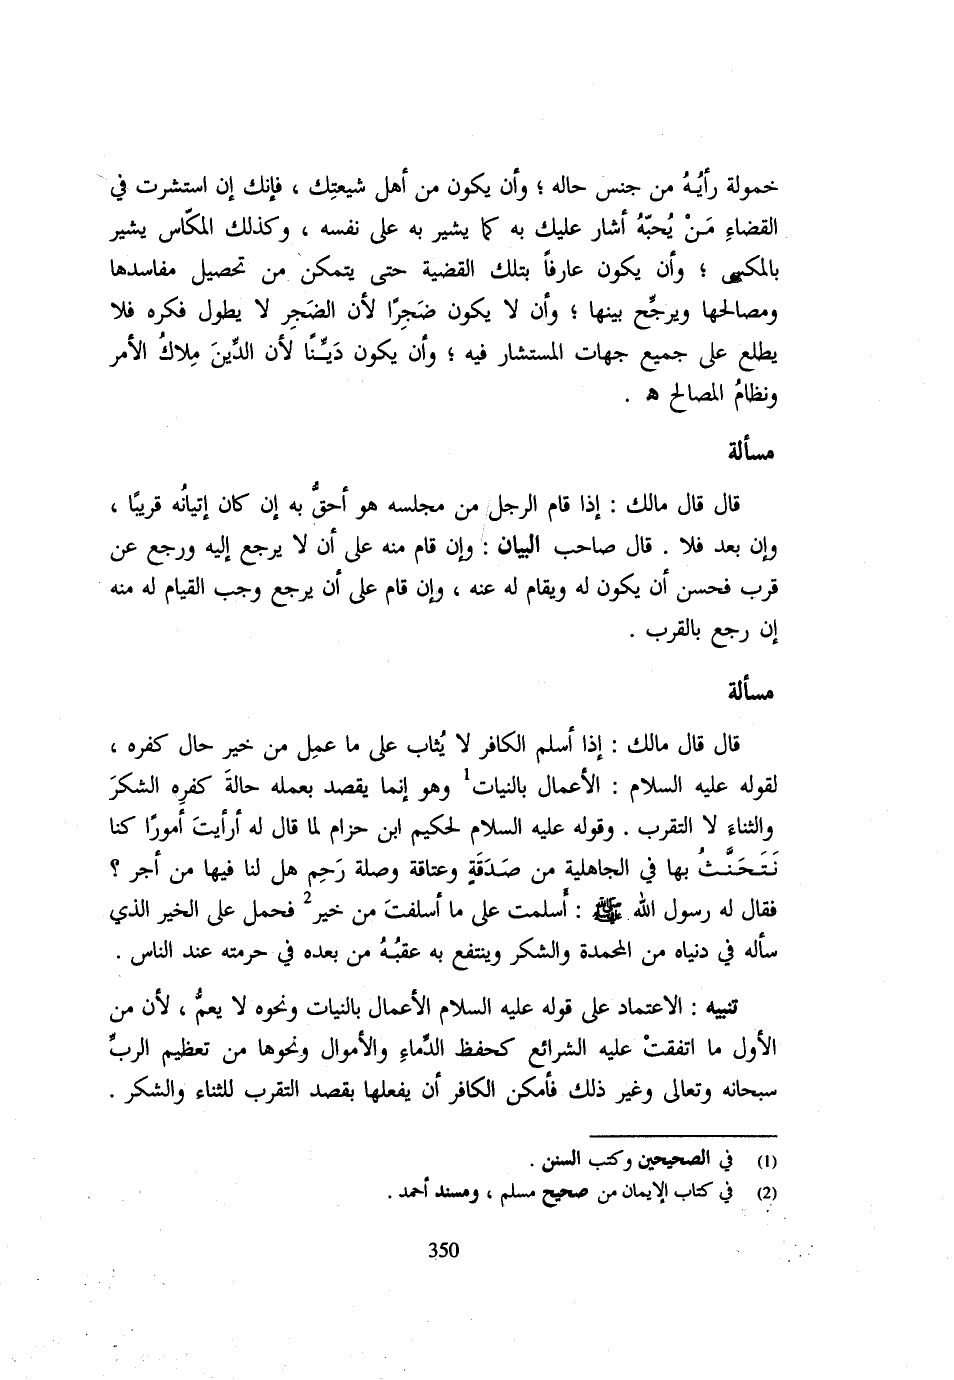 خمولة رأيُهُ من جنس حاله ؛ وأن يكون من أهل شيعتِك ، فإنك إن استشرت في
القضاءِ مَنْ يُحبّهُ أشار عليك به كما يشير به على نفسه ، وكذلك المكّاس يشير
بالمكس ؛ وأن يكون عارفاً بتلك القضية حتى يتمكن من تحصيل مفاسدها
ومصالحها ويرجِّح بينها ؛ وأن لا يكون ضَجِرًا لأن الضَجِر لا يطول فكره فلا
يطلع على جميع جهات المستشار فيه ؛ وأن يكون دَيِّنًا لأن الدِّينَ مِلاكُ الأمر
ونظامُ المصالح ﻫ .
مسألة
قال قال مالك : إذا قام الرجل من مجلسه هو أحقُّ به إن كان إتيانُه قريبًا ،
وإن بعد فلا . قال صاحب البيان : وإن قام منه على أن لا يرجع إليه ورجع عن
قرب فحسن أن يكون له ويقام له عنه ، وإن قام على أن يرجع وجب القيام له منه
إن رجع بالقرب .
مسألة
قال قال مالك : إذا أسلم الكافر لا يُثاب على ما عمِل من خير حال كفره ،
لقوله عليه السلام : الأعمال بالنيات1 وهو إنما يقصد بعمله حالةَ كفرِه الشكرَ
والثناءَ لا التقرب . وقوله عليه السلام لحكيم ابن حزام لما قال له أرأيتَ أمورًا كنا
نَتَحَنَّثُ بها في الجاهلية من صَدَقَةٍ وعتاقة وصلة رَحِم هل لنا فيها من أجر ؟
فقال له رسول الله ﷺ : أَسلمت على ما أسلفتَ من خير2 فحمل على الخير الذي
سأله في دنياه من المحمدة والشكر وينتفع به عقبُهُ من بعده في حرمته عند الناس .
تنبيه : الاعتماد على قوله عليه السلام الأعمال بالنيات ونحوه لا يعمُّ ، لأن من
الأول ما اتفقتْ عليه الشرائع كحفظ الدِّماءِ والأموال ونحوها من تعظيم الربِّ
سبحانه وتعالى وغير ذلك فأمكن الكافر أن يفعلها بقصد التقرب للثناء والشكر .
(1) في الصحيحين وكتب السنن .
(2) في كتاب الإيمان من صحيح مسلم ، ومسند أحمد .
350